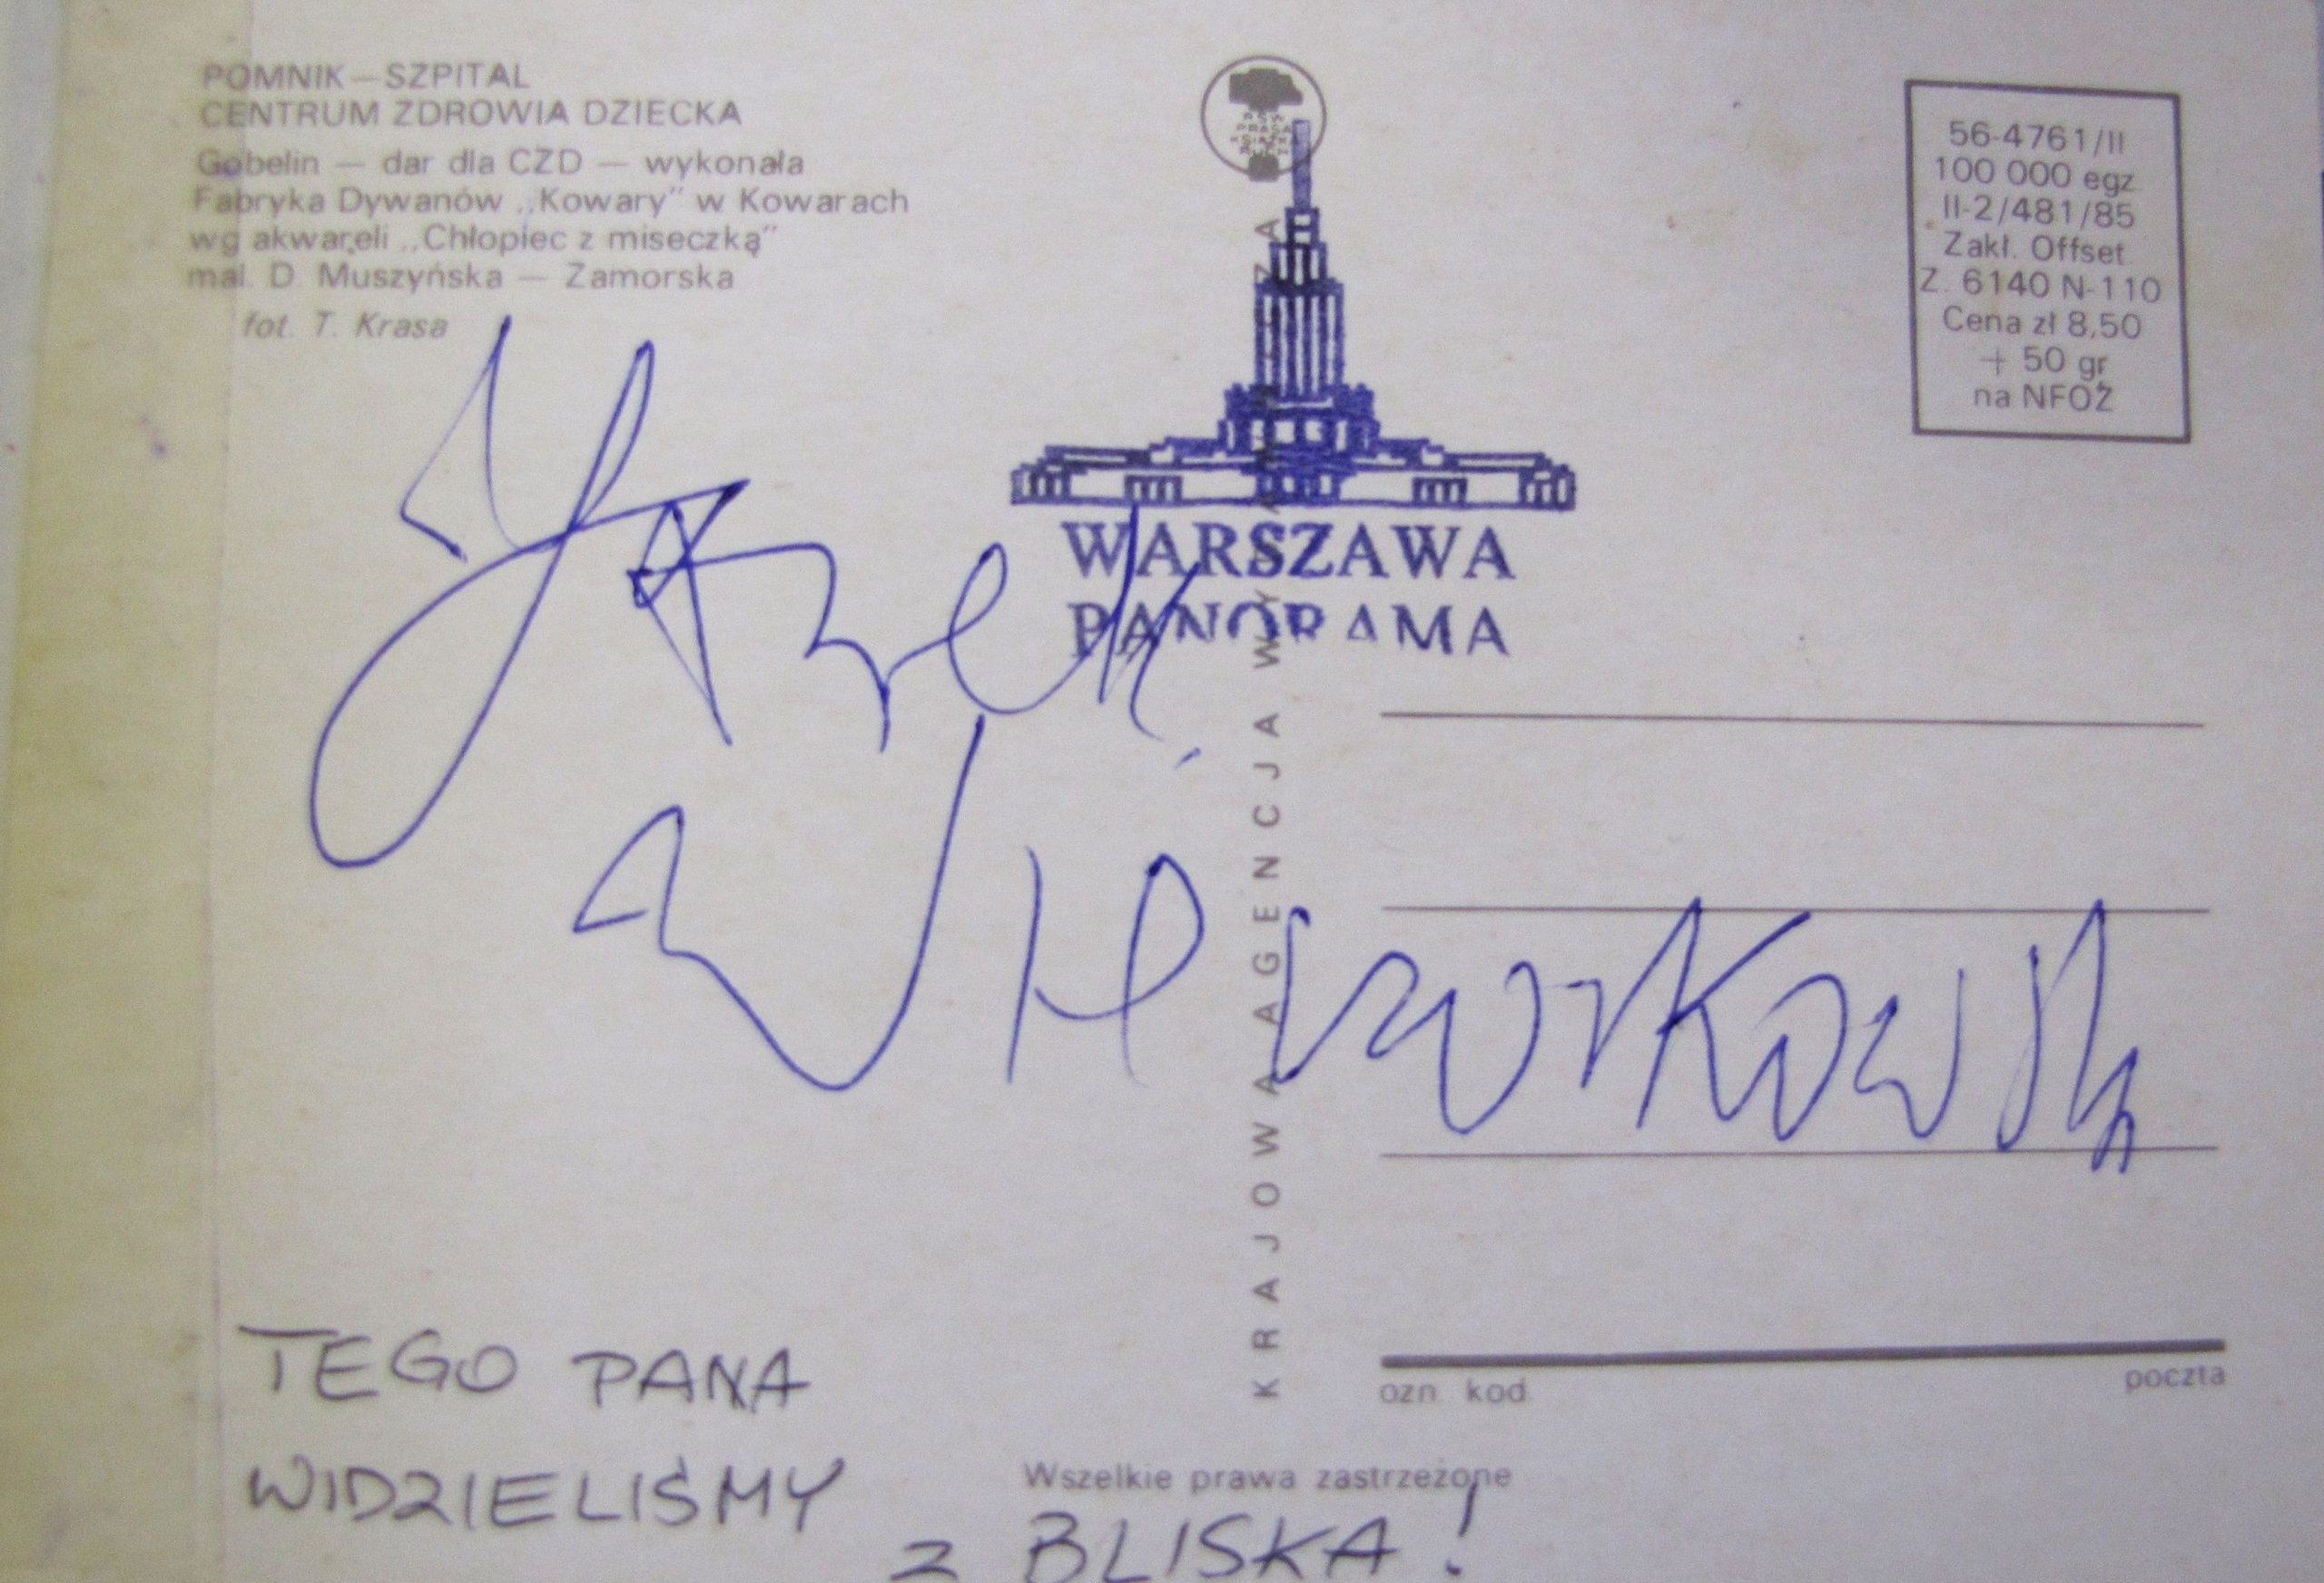 POMNIK—SZPITAL
CENTRUM ZDROWIA DZIECKA
Gobelin — dar dla CZD — wykonała
Fabryka Dywanów „Kowary” w Kowarach
wg akwareli „Chłopiec z miseczką”
mal. D. Muszyńska — Zamorska
fot. T. Krasa
56-4761/II
100 000 egz.
II-2/481/85
Zakł. Offset.
Z. 6140 N-110
Cena zł 8,50
+ 50 gr
na NFOZ
WARSZAWA
PANORAMA
KRAJOWA AGENCJA
Jurek
ozn. kod
poczta
Wszelkie prawa zastrzeżone
TEGO PANA
WIDZIELIŚMY
z BLISKA!